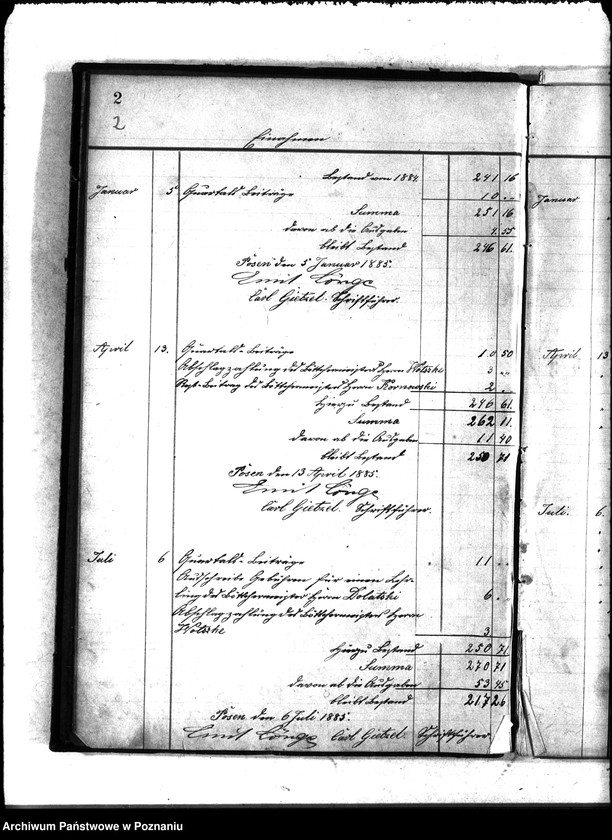 2
2
Einnahmen
Bestand von 1884. 241 16
Januar 5 Quartals Beiträge 10 ..
Summa 251 16
davon ab die Ausgaben 4.55
bleibt Bestand 246 61.
Posen den 5 Januar 1885.
Emil
Carl Gietzel. Schriftführer.
April 13. Quartals-Beiträge 10 50
Abschlagzahlung des Böttchermeisters Herrn 3 ..
Rest-Beitrag des Böttchermeisters Herrn 2 ..
Hierzu Bestand 246 61.
Summa 262 11.
davon ab die Ausgaben 11 40
bleibt Bestand 250 71
Posen den 13 April 1885.
Emil
Carl Gietzel. Schriftführer.
Juli 6 Quartals-Beiträge 11 ..
Ausschreibe Gebühren für einen Lehr-
ling des Böttchermeister Herrn Dolatzki 6 ..
Abschlagzahlung des Böttchermeisters Herrn
3
Hierzu Bestand 250 71
Summa 270 71
davon ab die Ausgaben 53 45
bleibt Bestand 217 26
Posen den 6 Juli 1885.
Emil Carl Gietzel. Schriftführer
Januar
April 13
Juli. 6.
Archiwum Państwowe w Poznaniu